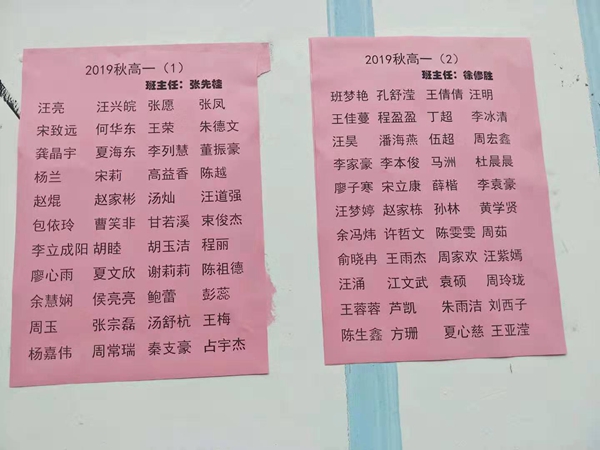 2019秋高一（1）
班主任：张先桂
汪亮 汪兴皖 张愿 张凤
宋致远 何华东 王荣 朱德文
龚晶宇 夏海东 李列慧 董振豪
杨兰 宋莉 高益香 陈越
赵焜 赵家彬 汤灿 汪道强
包依玲 曹笑非 甘若溪 束俊杰
李立成阳 胡睦 胡玉洁 程丽
廖心雨 夏文欣 谢莉莉 陈祖德
余慧娴 侯亮亮 鲍蕾 彭蕊
周玉 张宗磊 汤舒杭 王梅
杨嘉伟 周常瑞 秦支豪 占宇杰
2019秋高一（2）
班主任：徐修胜
班梦艳 孔舒滢 王倩倩 汪明
王佳蔓 程盈盈 丁超 李冰清
汪昊 潘海燕 伍超 周宏鑫
李家豪 李本俊 马洲 杜晨晨
廖子寒 宋立康 薛楷 李袁豪
汪梦婷 赵家栋 孙林 黄学贤
余冯炜 许哲文 陈雯雯 周茹
俞晓冉 王雨杰 周家欢 汪紫嫣
汪涌 江文武 袁硕 周玲珑
王蓉蓉 芦凯 朱雨洁 刘西子
陈生鑫 方珊 夏心慈 王亚滢